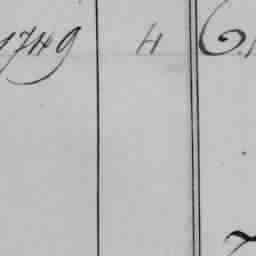 1749 4 6.